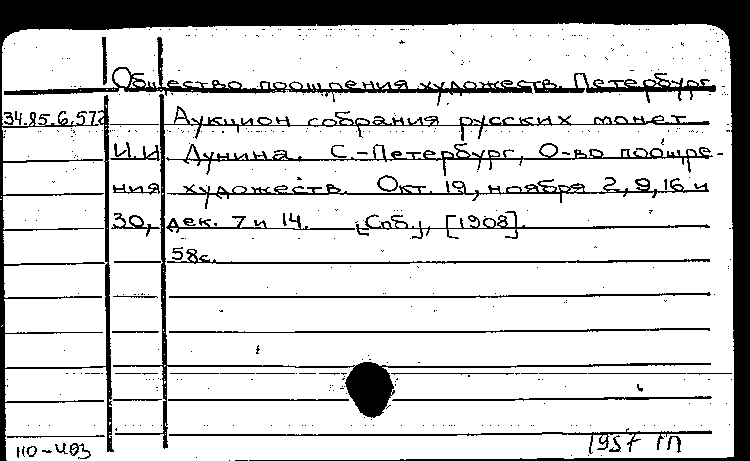 Общество поощрения художеств. Петербург.
34.85.6,572 Аукцион собрания русских монет
И.И. Дунина. С.-Петербург, О-во поощре-
ния художеств. Окт. 19, ноября 2, 9, 16 и
30, дек. 7 и 14. [Спб.], [1908].
58с.
110-493 1957 ГП